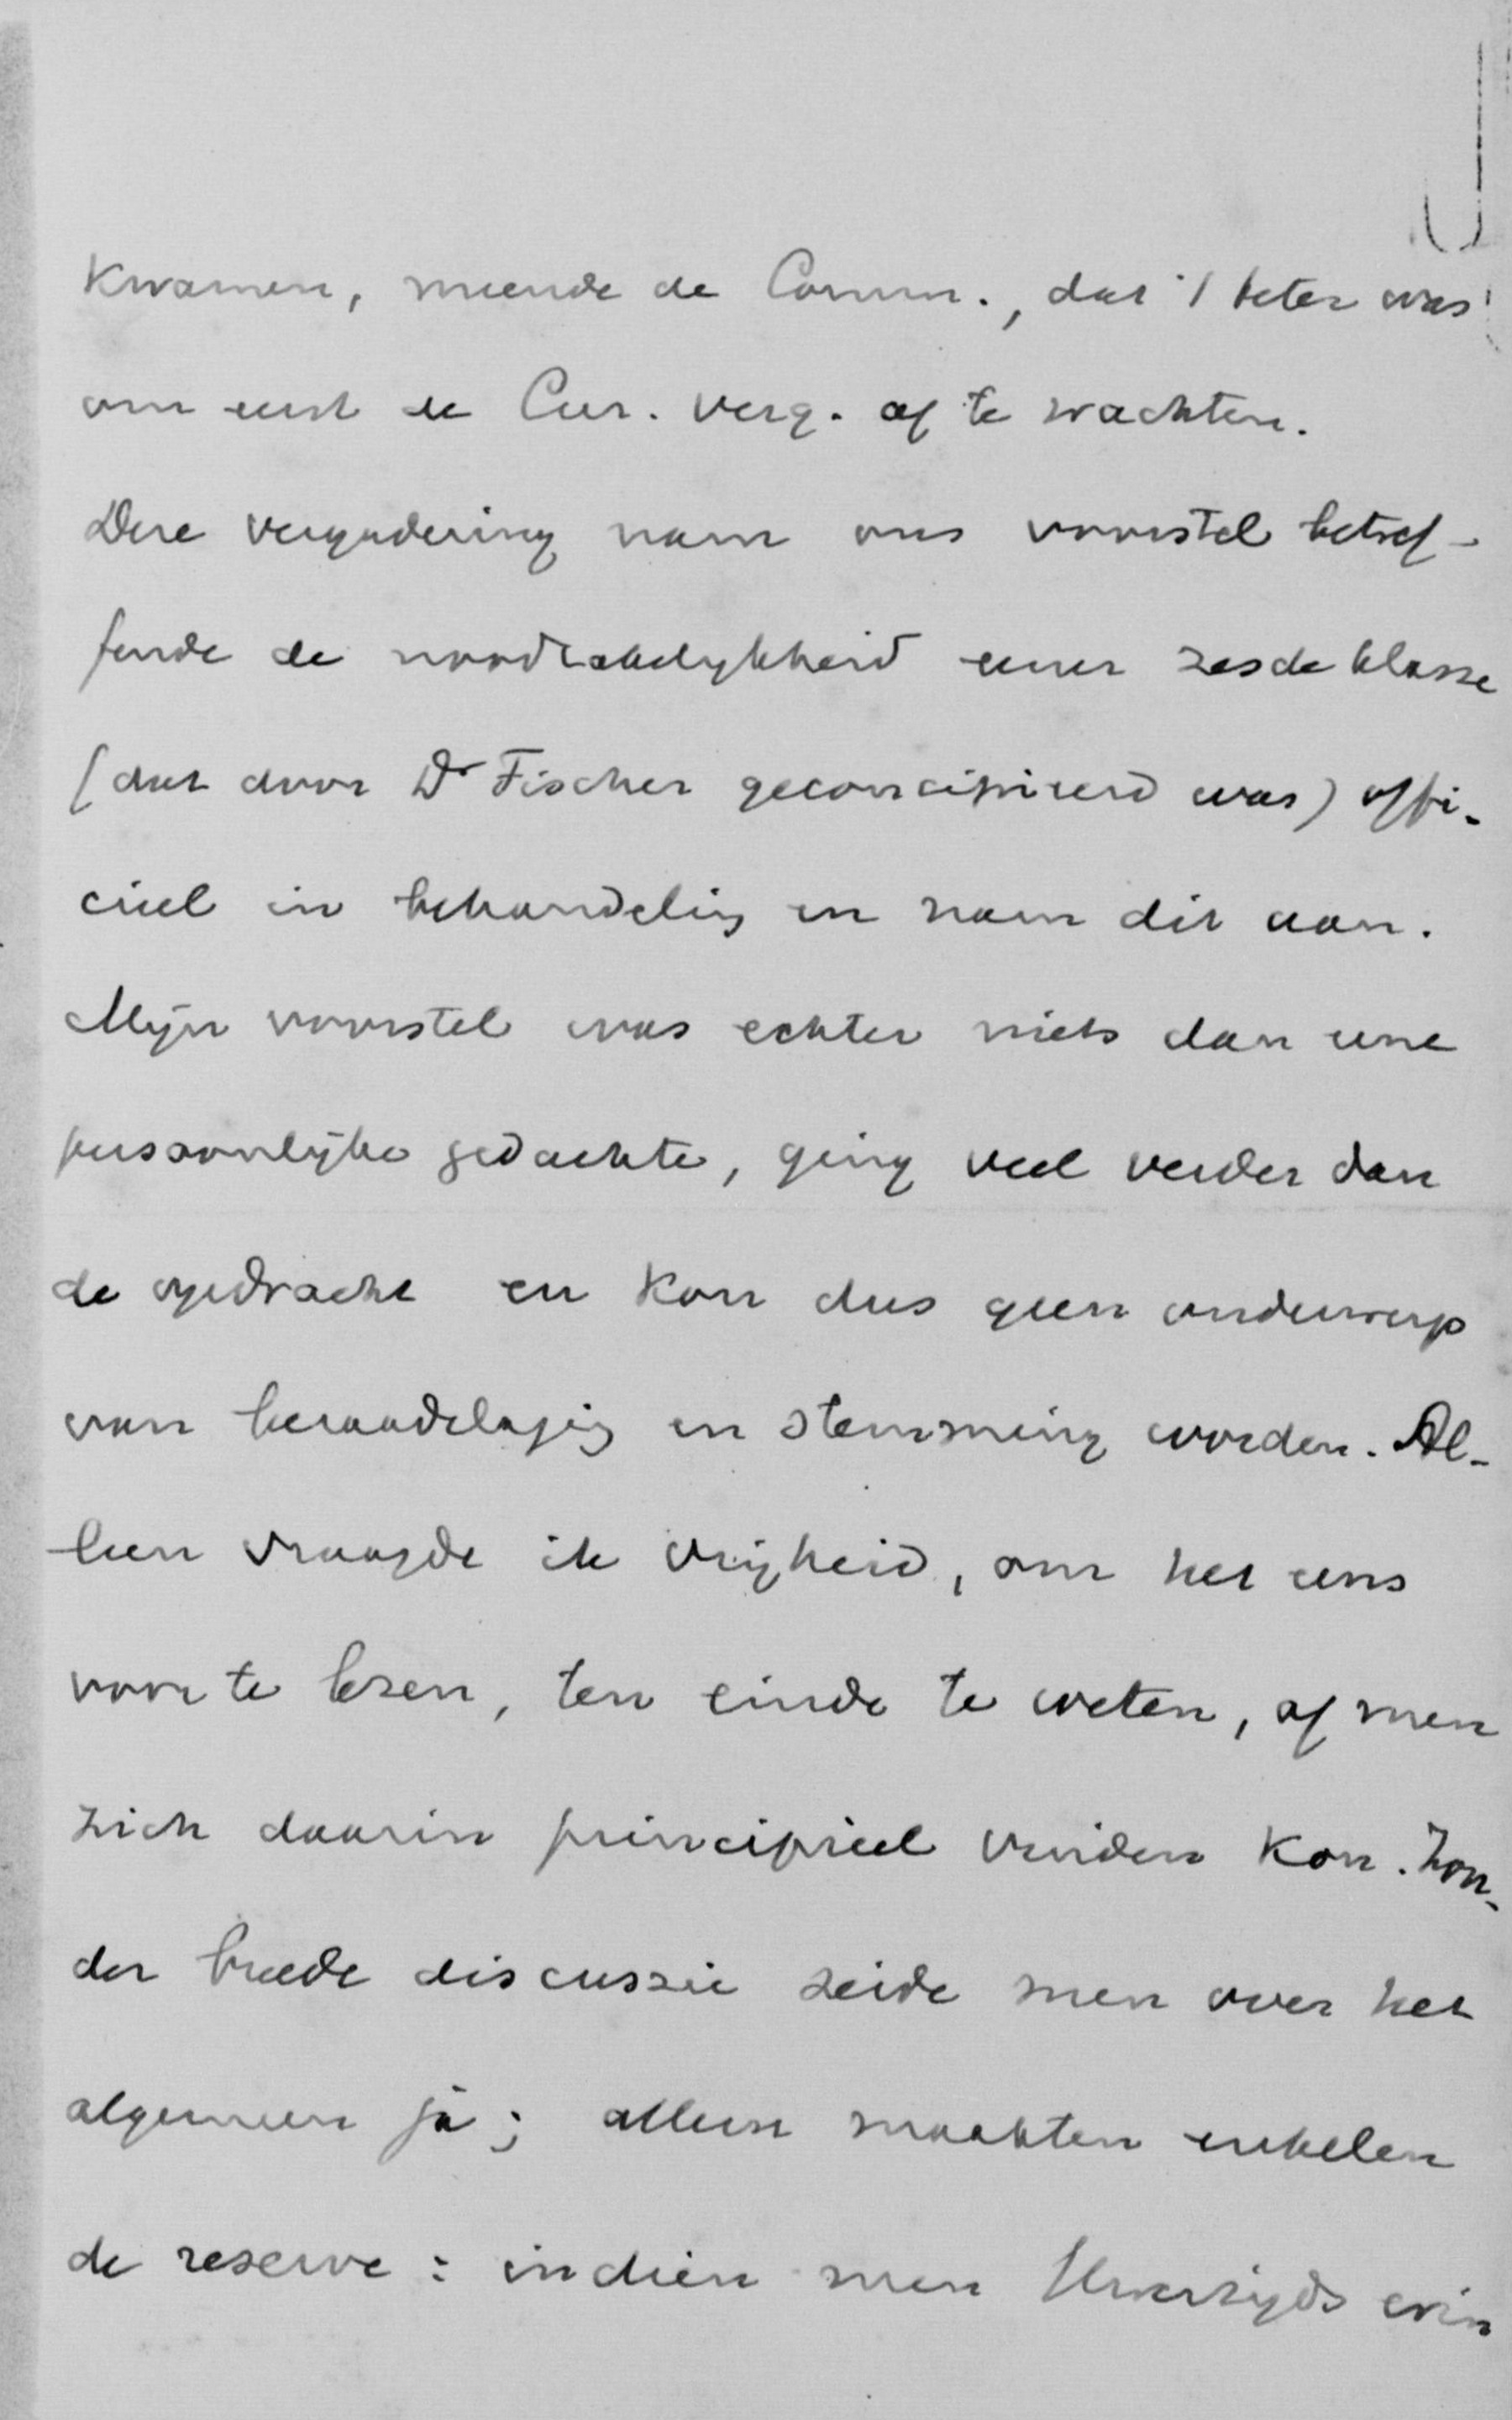 kwamen, meende de Comm., dat 't beter was
om eerst de Cur. verg. af te wachten.
Deze vergadering nam ons voorstel betref-
fende de noodzakelykheid eener zesde klasse
(dat door Dr Fischer geconcipieerd was) offi-
cieel in behandeling en nam dit aan.
Mijn voorstel was echter niets dan eene
persoonlijke gedachte, ging veel verder dan
de opdracht en kon dus geen onderwerp
van beraadslaging en stemming worden. Al-
leen vraagde ik vrijheid, om het eens
voor te lezen, ten einde te weten, of men
zich daarin principieel vinden kon. Zon-
der breede discussie zeide men over het
algemeen ja; alleen maakten enkelen
de reserve: indien men Uwerzijds erin